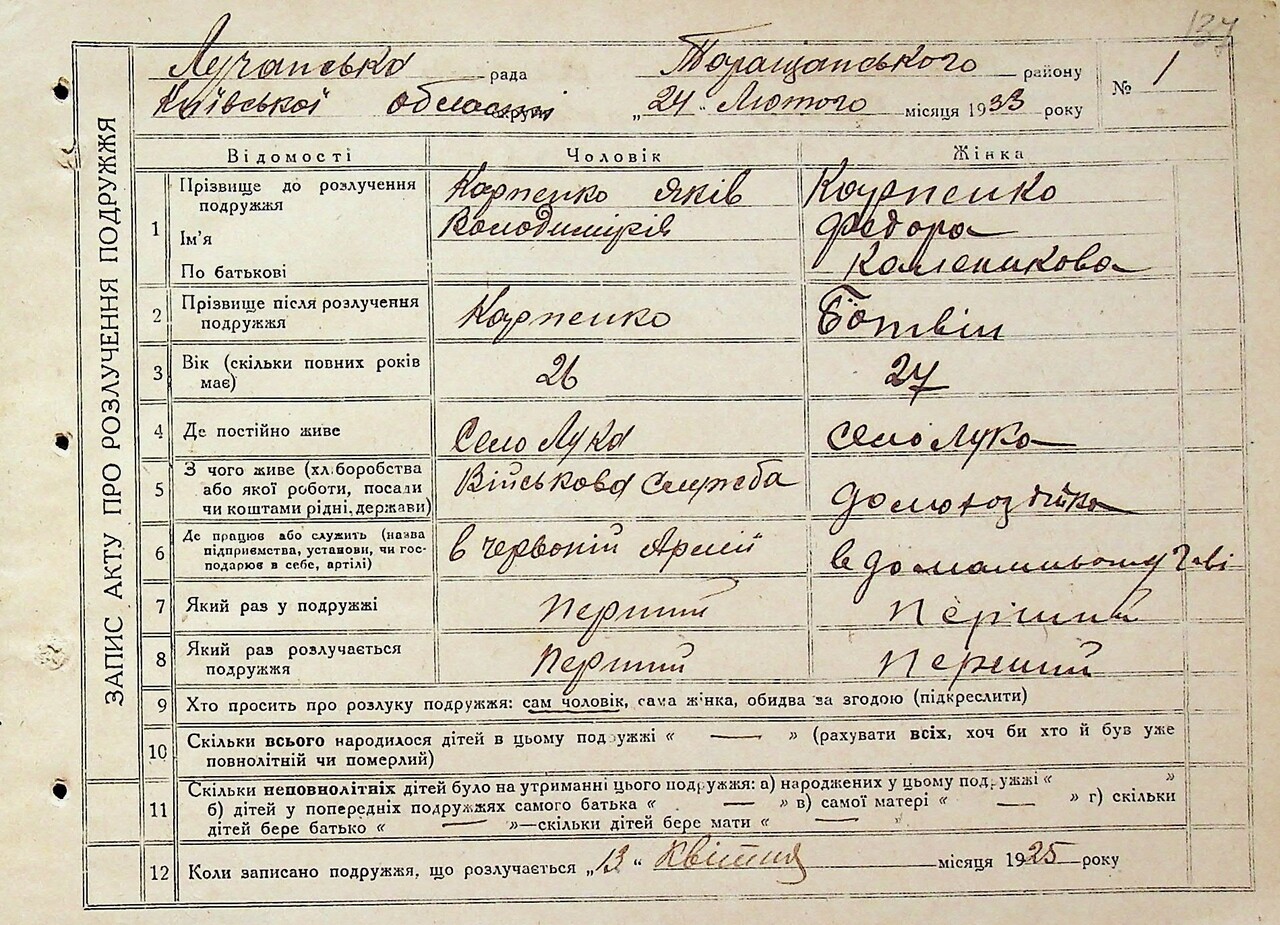 137
Лучанська рада Таращанського району № 1
Київської області округи „24" Лютого місяця 1933 року
ЗАПИС АКТУ ПРО РОЗЛУЧЕННЯ ПОДРУЖЖЯ
Відомості Чоловік Жінка
1 Прізвище до розлучення подружжя Карпенко Яків Карпенко
Ім'я Володимирів Федора
По батькові Каленикова
2 Прізвище після розлучення подружжя Карпенко Ботвін
3 Вік (скільки повних років має) 26 27
4 Де постійно живе Село Лука село Лука
5 З чого живе (хліборобства Військова служба
або якої роботи, посади
чи коштами рідні, держави) домохозяйка
6 Де працює або служить (назва в червоній Армії
підприємства, установи, чи гос- в домашньому
подарює в себе, артілі)
7 Який раз у подружжі перший перший
8 Який раз розлучається подружжя перший перший
9 Хто просить про розлуку подружжя: сам чоловік, сама жінка, обидва за згодою (підкреслити)
10 Скільки всього народилося дітей в цьому подружжі « — » (рахувати всіх, хоч би хто й був уже
повнолітній чи померлий)
11 Скільки неповнолітніх дітей було на утриманні цього подружжя: а) народжених у цьому подружжі « »
б) дітей у попередніх подружжях самого батька « — » в) самої матері « — » г) скільки
дітей бере батько « — »—скільки дітей бере мати « — »
12 Коли записано подружжя, що розлучається „13" Квітня місяця 1925 року